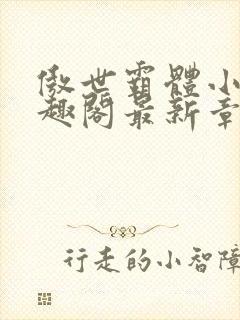 傲世霸體小
趣閣最新章
行走的小智障